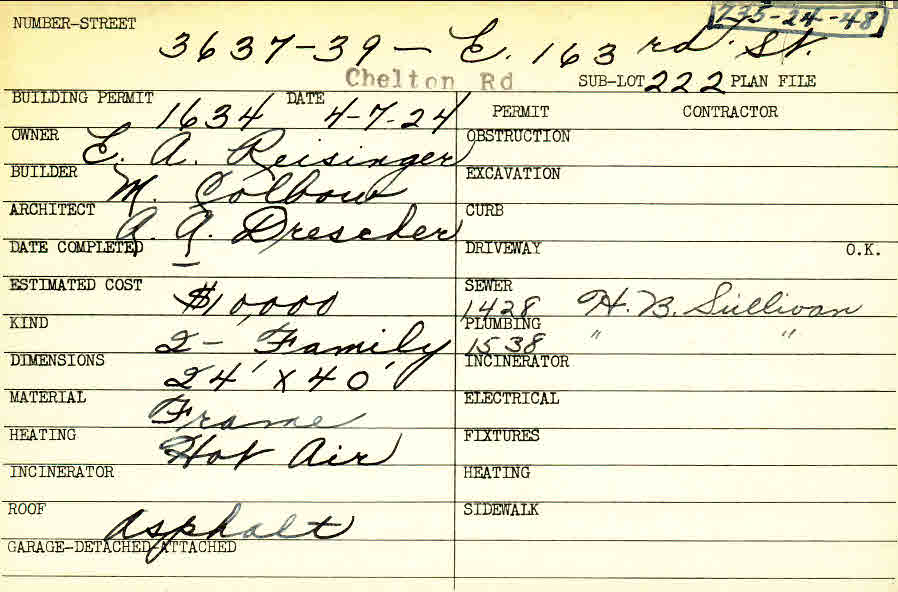 735-24-48
NUMBER-STREET
3637-39 - E. 163 rd. St.
Chelton Rd
SUB-LOT 222 PLAN FILE
BUILDING PERMIT 1634 DATE 4-7-24
OWNER E. A. Reisinger
BUILDER M. Colbow
ARCHITECT A. A. Drescher
DATE COMPLETED -
ESTIMATED COST $10,000
KIND 2- Family
DIMENSIONS 24' X 40'
MATERIAL Frame
HEATING Hot Air
INCINERATOR
ROOF Asphalt
GARAGE-DETACHED-ATTACHED
PERMIT CONTRACTOR
OBSTRUCTION
EXCAVATION
CURB
DRIVEWAY O.K.
SEWER
1428 H. B. Sullivan
PLUMBING
1538 " "
INCINERATOR
ELECTRICAL
FIXTURES
HEATING
SIDEWALK